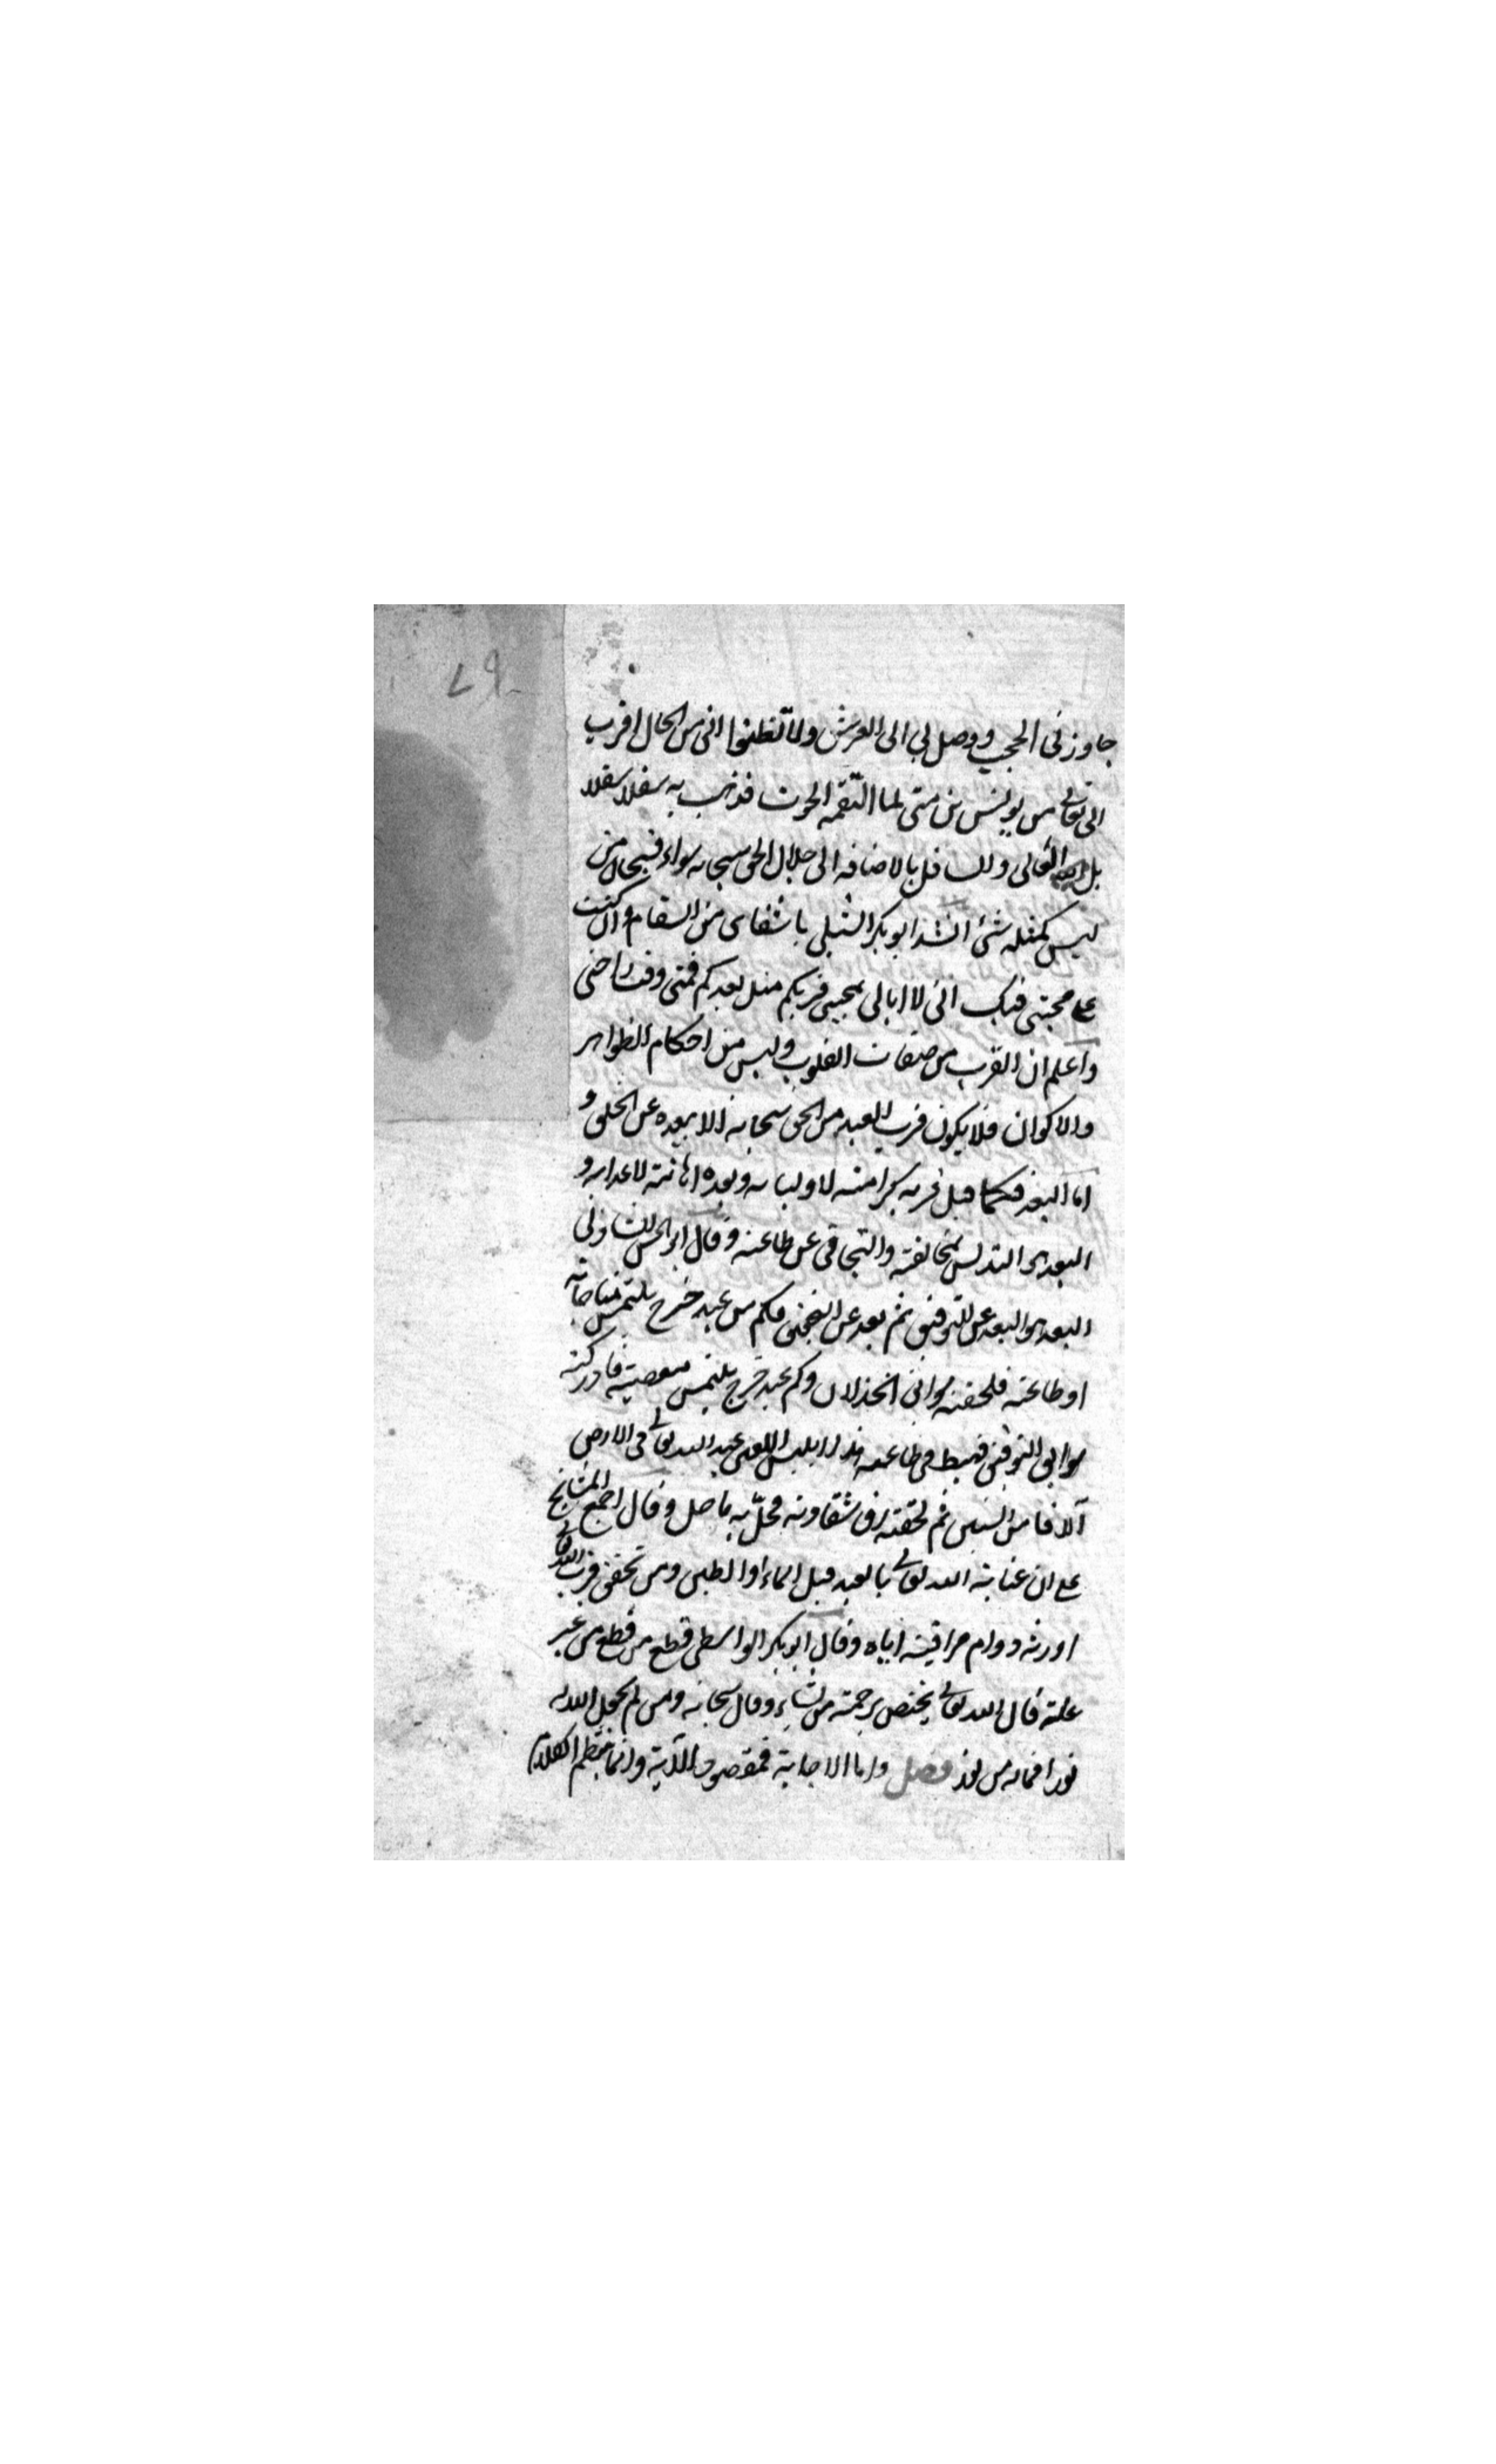 ٧٩
جاوزنى الحجب ووصل بى الى العرش ولا تظنوا انى من الحال اقرب
الى تعالى من يونس بن متى لما التقمه الحوت فذهب به سفلا سفلا
بل العالى والسافل بالاضافه الى جلال الحق سبحانه سواء فسبحان من
ليس كمثله شئ انشد ابو بكر الشبلى يا شفاى من السقام وان كنت
على محبتى فيك انى لا ابالى بمحبتى قربكم مثل بعدكم فمتى وقت راحتى
واعلم ان القرب من صفات القلوب وليس من احكام الظواهر
والاكوان فلا يكون قرب العبد من الحق سبحانه الا ببعده عن الخلق و
اما البعد فكما قيل قربه كرامته لاوليائه وبعده اهانته لاعدايه و
البعد هو التدنس بمخالفته والتجافى عن طاعته وقال ابو الحسن الشاذلى
البعد هو البعد عن التوفيق ثم بعد عن التحقيق فكم من عبد خرج يلتمس مناجاته
او طاعته فلحقته بوائق الخذلان وكم عبد خرج يلتمس معصيته فادركته
سوابق التوفيق فهبط فى طاعته هذا ابليس اللعين عبد الله تعالى فى الارض
آلافا من السنين ثم لحقته شقاوته فحل به ما حل وقال اجمع المشايخ
على ان عناية الله تعالى بالعبد قبل الماء والطين ومن تحقق قرب الله تعالى
اورثه دوام مراقبته اياه وقال ابو بكر الواسطى قطع من قطع من غير
علته قال الله تعالى يختص برحمته من يشاء وقال سبحانه ومن لم يجعل الله له
نورا فما له من نور فصل واما الاجابة فمقصود الآية وانما ينتظم الكلام